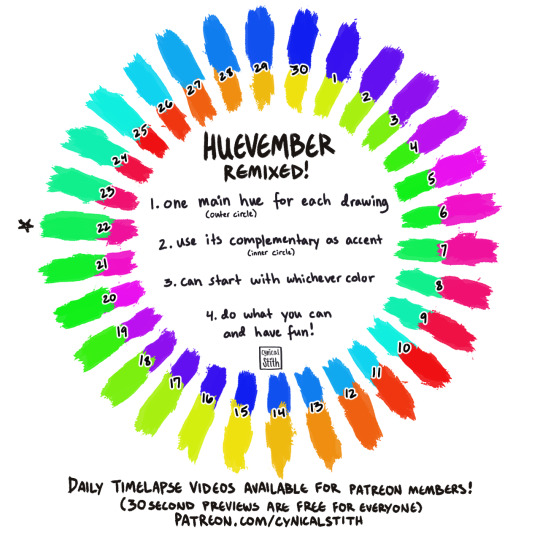 HUEVEMBER
REMIXED!
1. one main hue for each drawing
(outer circle)
2. use its complementary as accent
(inner circle)
3. can start with whichever color
4. do what you can
and have fun!
cynical
Stith
1
2
3
4
5
6
7
8
9
10
11
12
13
14
15
16
17
18
19
20
21
22
23
24
25
26
27
28
29
30
DAILY TIMELAPSE VIDEOS AVAILABLE FOR PATREON MEMBERS!
(30 SECOND PREVIEWS ARE FREE FOR EVERYONE)
PATREON.COM/CYNICALSTITH